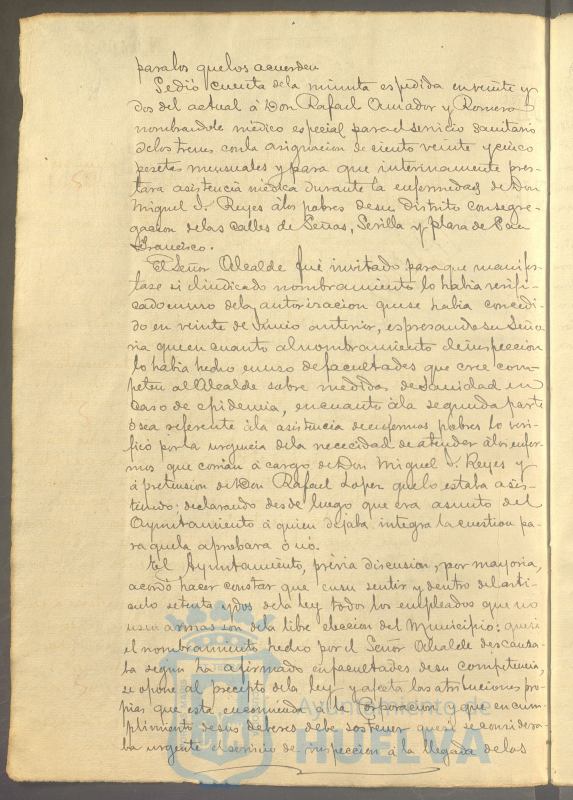 para los que los acuerden
Se dió cuenta de la minuta espedida en veinte y
dos del actual á Don Rafael Amador y Romero
nombrandole médico especial para el servicio sanitario
de los trenes con la asignacion de ciento veinte y cinco
pesetas mensuales y para que interinamente pres-
tara asistencia médica durante la enfermedad de Don
Miguel Reyes á los pobres de su Distrito con segre-
gacion de las calles de Señas, Sevilla y plaza de San
Francisco.
El Señor Alcalde fué invitado para que manifes-
tase si el indicado nombramiento lo habia verifi-
cado en uso de la autorizacion que se habia concedi-
do en veinte de Junio anterior, espresando su Seño-
ria que en cuanto al nombramiento de inspeccion
lo habia hecho en uso de facultades que cree com-
peten al Alcalde sobre medidas de sanidad en
caso de epidemia, en cuanto á la segunda parte
ó sea referente á la asistencia de enfermos pobres lo veri-
ficó por la urgencia de la necesidad de atender á los enfer-
mos que corrian á cargo de Don Miguel Reyes y
á pretension de Don Rafael Lopez que lo estaba asis-
tiendo; declarando desde luego que era asunto del
Ayuntamiento á quien dejaba integra la cuestion pa-
ra que la aprobara ó nó.
El Ayuntamiento, prévia discusion, por mayoria,
acordó hacer constar que en su sentir y dentro del arti-
culo setenta y dos de la ley todos los empleados que no
usen armas son de la libre eleccion del Municipio: que si
el nombramiento hecho por el Señor Alcalde descansa-
ba segun ha afirmado en facultades de su competencia,
se opone al precepto de la ley y afecta las atribuciones pro-
pias que esta encomienda á la Corporacion y que en cum-
plimiento de sus deberes debe sostener que si se considera-
ba urgente el servicio de inspeccion á la llegada de los
Ayuntamiento de
HUELVA